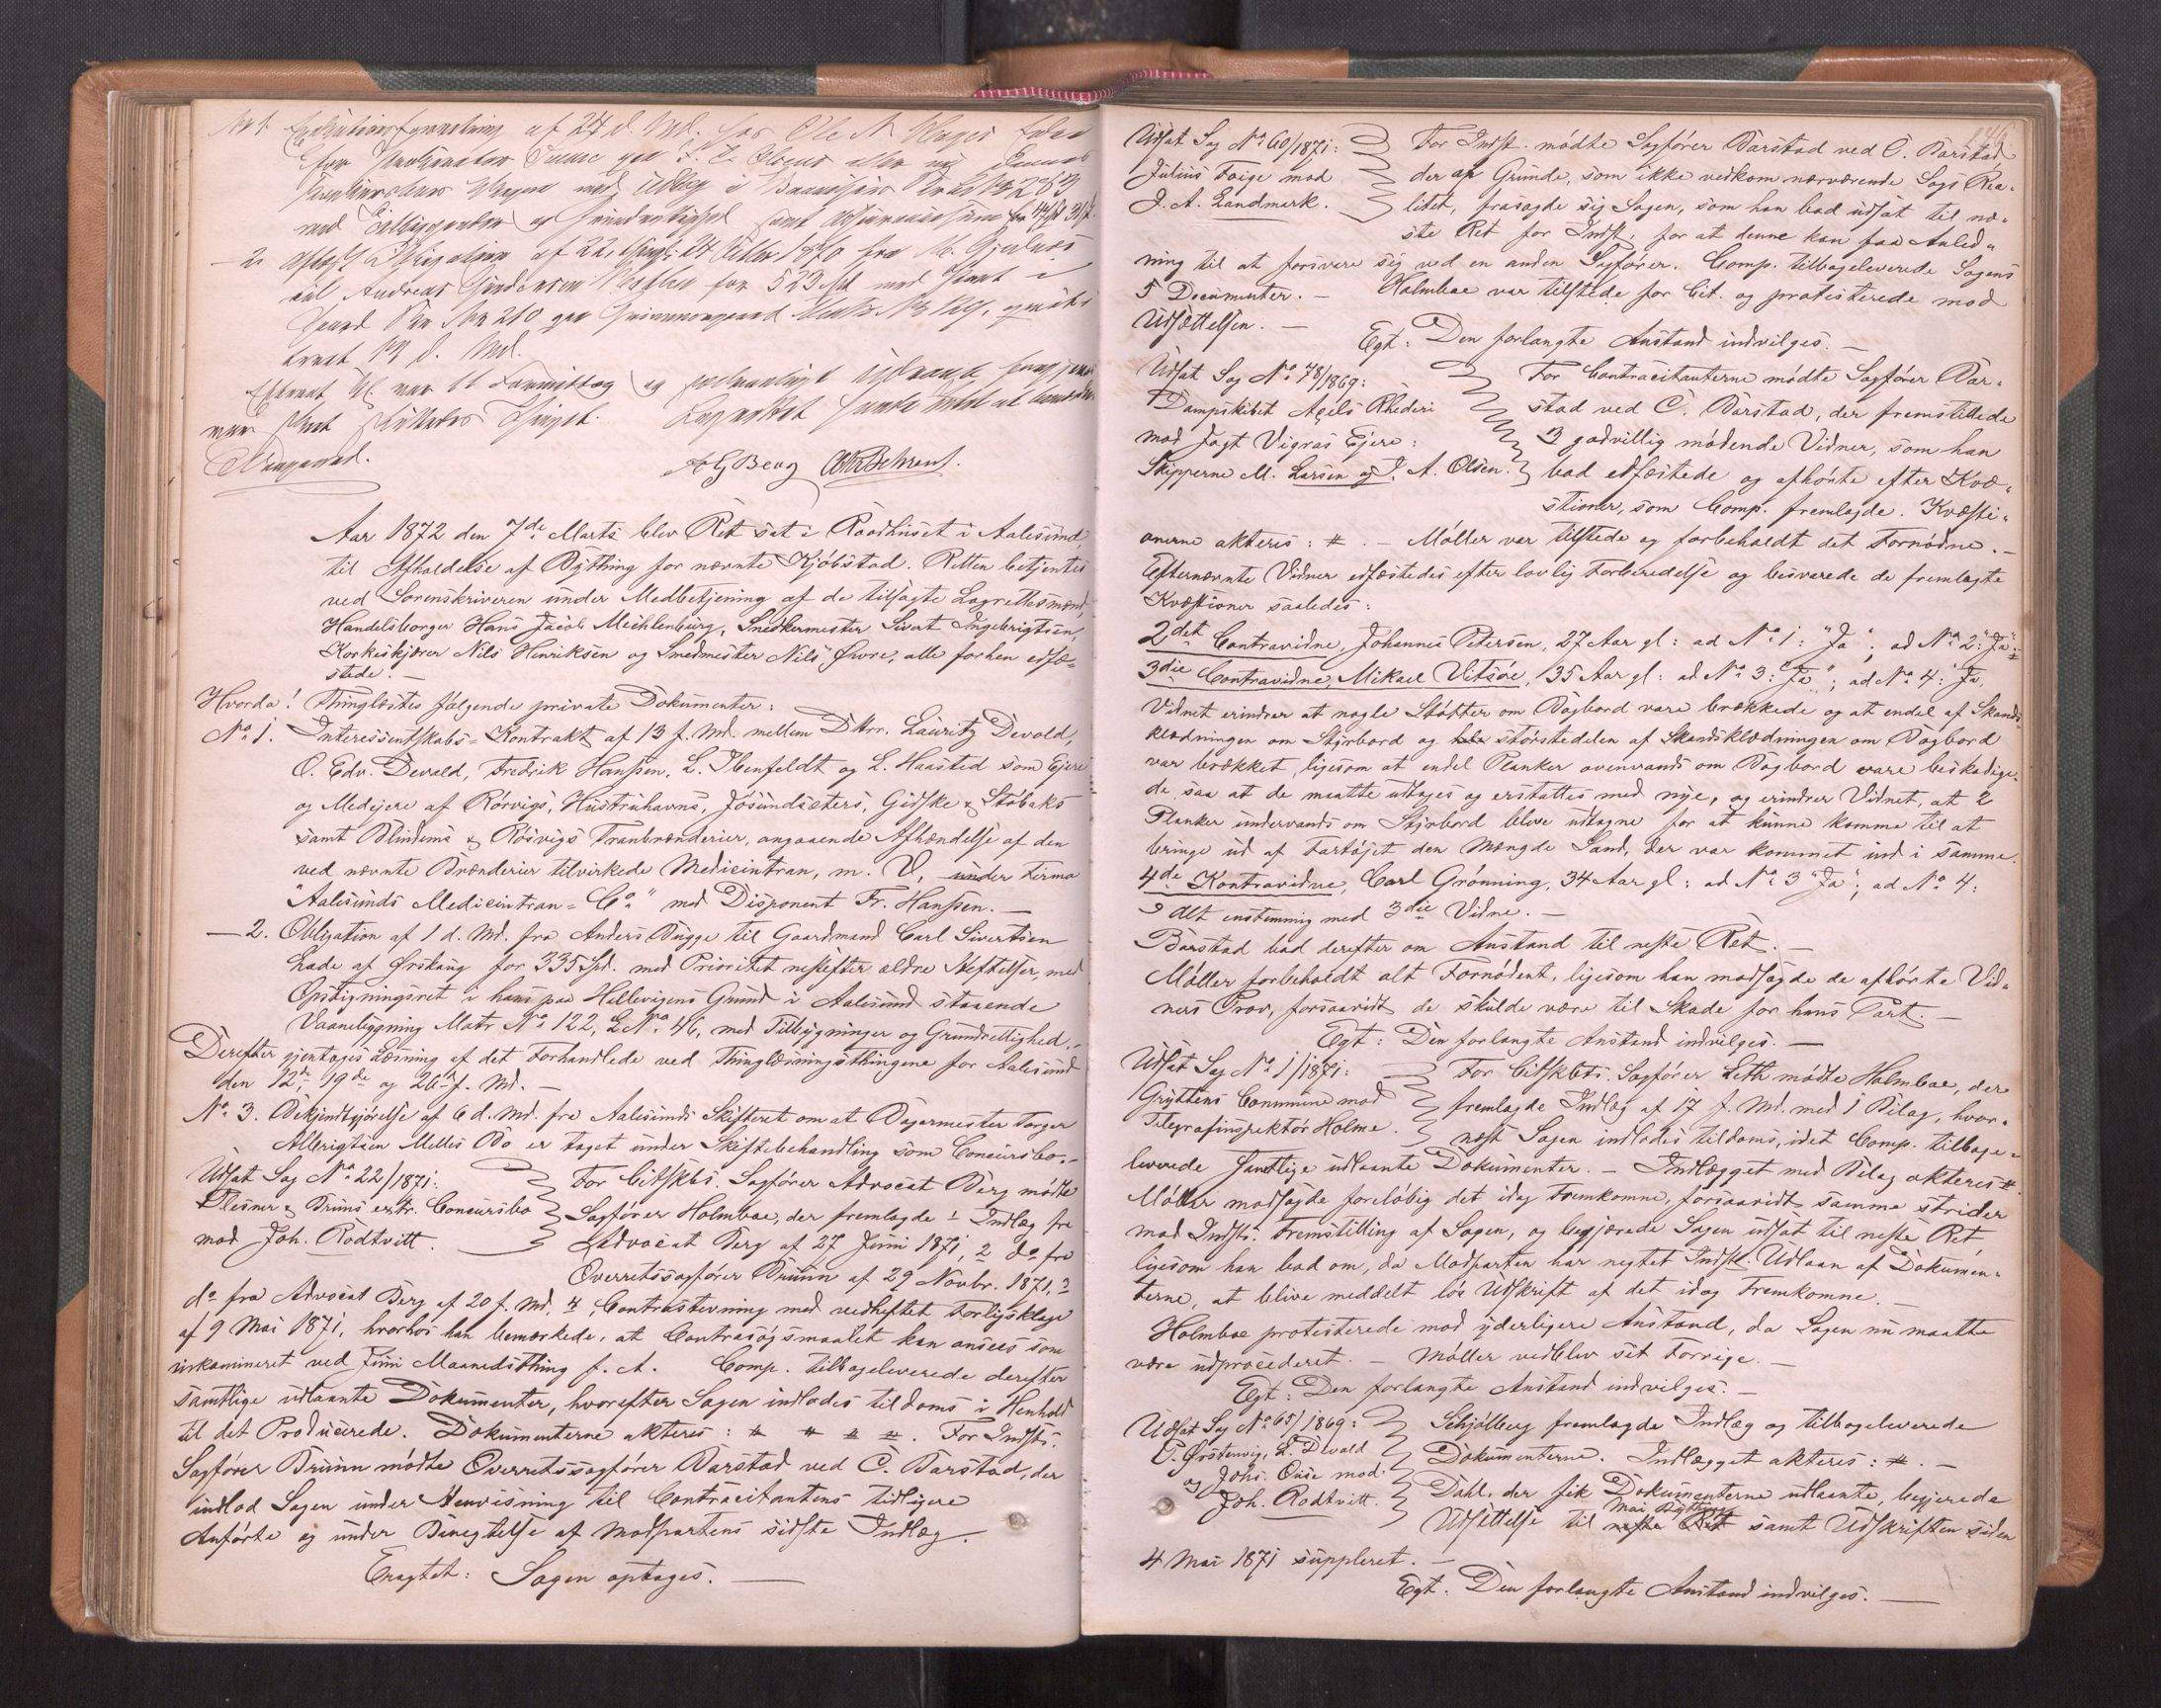 No 1. af 24 d. Md. hos Ole
for
med Udlæg i
med
- 2. Obligation af 22. 1870 fra
til Andreas for 523 Spd. med Pant i
No 210 paa
d. Md.
Kl. var 11 Formiddag og
Thinget.
A G Berg Behrens.
Aar 1872 den 7de Marts blev Ret sat i Raadhuset i Aalesund
til Afholdelse af Bything for nævnte Kjöbstad. Retten betjentes
ved Sorenskriveren under Medbetjening af de tilsagte Lagrettesmænd,
Handelsborger Hans Jacob Mechlenburg, Snedkermester Sivert Ingebrigtsen,
Korkeskjærer Nils Henriksen og Smedmester Nils Øvre, alle forhen edfæ-
stede. —
Hvorda! Thinglæstes fölgende private Dokumenter:
No 1. Interessentskabs-Kontrakt af 13 f. Md. mellem DHrr. Lauritz Devold,
O. Edv. Devold, Fredrik Hanssen, L. Ibenfeldt og L. Haasted som Ejere
og Medejere af Rörvigs, Hustruhavns, Jösundsæters, Gidske & Stöbaks
samt Blindems & Rösvigs Tranbrænderier, angaaende Afhændelse af den
ved nævnte Brænderier tilvirkede Medicintran, m. V. under Firma
"Aalesunds Medicintran-Co" med Disponent Fr. Hanssen. —
— 2. Obligation af 1 d. Md. fra Anders Bugge til Gaardmand Carl Sivertsen
Lade af Ørskaug for 335 Spd. med Prioritet næstefter ældre Heftelser, med
Opstigningsret i hans paa Hellevigens Grund i Aalesund staaende
Vaaneliggning Matr No 122, L No 46, med Tilbygninger og Grundrettighed. -
Derefter gjentages Læsning af det Forhandlede ved Thinglæsningsthingene for Aalesund
den 12te, 19de og 26de f. Md. —
No 3. Bekjendtgjörelse af 6 d. Md. fra Aalesunds Skifteret om at Bagermester Torger
Albrigtsen Melles Bo er taget under Skiftebehandling som Concursbo. -
Udsat Sag No 22/1871:
Plesner & Bruns extr. Concursbo
mod Joh. Rödtvitt.
For Citsktes. Sagförer Advocat Berg mödte
Sagförer Holmboe, der fremlagde 1 Indlæg fra
Advocat Berg af 27 Juni 1871, 2 do fra
Overretssagförer Brunn af 29 Novbr. 1871, 3
do fra Advocat Berg af 20 f. Md. 4 Contrastevning med vedheftet Forligsklage
af 9 Mai 1871, hvorhos han bemærkede, at Contrasögsmaalet kan ansees som
inkamineret ved Juni Maanedsthing f. A. Comp. tilbageleverede derefter
samtlige udlaante Dokumenter, hvorefter Sagen indlodes til doms i Henhold
til det Producerede. Dokumenterne akteres: # # # #. For Indsts.
Sagförer Brunn mödte Overretssagförer Barstad ved C. Barstad, der
indlod Sagen under Henvisning til Contracitantens tidligere
Anförte og under Benegtelse af Modpartens sidste Indlæg.
Eragtet: Sagen optages. —
Udsat Sag No 60/1871:
Julius Faige mod
J. A. Landmark.
For Indst. mödte Sagförer Barstad ved C. Barstad
der af Grunde, som ikke vedkom nærværende Sags Rea-
litet, frasagde sig Sagen, som han bad udsat til næ-
ste Ret for Indst. for at denne kan faa Anled-
ning til at forsvare sig ved en anden Sagförer. Comp. tilbageleverede Sagens
5 Documenter. — Holmboe var tilstede for Cit. og protesterede mod
Udsættelsen. —
Egt: Den forlangte Anstand indvilges. —
Udsat Sag No 78/1869:
Dampskibet Axels Rhederi
mod Jagt Vigras Ejere:
Skipperne M. Larsen og J. A. Olsen.
For Contracitanterne mödte Sagförer Bar-
stad ved C. Barstad, der fremstillede
3 godvillig mödende Vidner, som han
bad edfæstede og afhörte efter Kvæ-
stioner, som Comp. fremlagde. Kvæsti-
onerne akteres: #. — Möller var tilstede og forbeholdt det Fornödne. —
Efternævnte Vidner edfæstedes efter lovlig Forberedelse og besvarede de fremlagte
Kvæstioner saaledes:
2det Contravidne, Johannes Petersen, 27 Aar gl: ad No 1: "Ja"; ad No 2: "Ja". -
3die Contravidne, Mikael Vitsöe, 35 Aar gl: ad No 3: "Ja"; ad No 4: Ja,
Vidnet erindrer at nogle Stötter om Bagbord vare brækkede og at endel af Skands-
klædningen om Styrbord og hele störstedelen af Skandsklædningen om Bagbord
var brækket, ligesom at endel Planker ovenvands om Bagbord vare beskadige-
de saa at de maatte udtages og erstattes med nye, og erindrer Vidnet, at 2
Planker undervands om Styrbord bleve udtagne for at kunne komme til at
bringe ud af Fartöjet den Mængde Sand, der var kommet ind i samme.
4de Kontravidne, Carl Grönning, 34 Aar gl: ad No 3 "Ja"; ad No 4:
I Alt enstemmig med 3die Vidne. —
Barstad bad derefter om Anstand til neste Ret. —
Möller forbeholdt alt Fornödent, ligesom han modsagde de afhörte Vid-
ners Prov, forsaavidt de skulde være til Skade for hans Part. —
Egt: Den forlangte Anstand indvilges. —
Udsat Sag No 1/1871:
Gryttens Commune mod
Telegrafinspektör Holme.
For Citsktes. Sagförer Leth mödte Holmboe, der
fremlagde Indlæg af 17 f. Md. med 1 Bilag, hvor-
næst Sagen indlodes til doms, idet Comp. tilbage-
leverede samtlige udlaante Dokumenter. — Indlægget med Bilag akteres #.
Möller modsagde foreløbig det idag Fremkomne, forsaavidt samme strider
mod Indsts. Fremstilling af Sagen, og begjærede Sagen udsat til neste Ret
ligesom han bad om, da Modparten har negtet Indst. Udlaan af Dokumen-
terne, at blive meddelt lös Udskrift af det idag Fremkomne. —
Holmboe protesterede mod yderligere Anstand, da Sagen nu maatte
være udprocederet. — Möller vedblev sit Forrige. —
Egt: Den forlangte Anstand indvilges. —
Udsat Sag No 65/1869:
P. Ørstenvig, L. Devold
og Johs. Ouse mod
Joh. Rodtvitt.
Schjölberg fremlagde Indlæg og tilbageleverede
Dokumenterne. Indlægget akteres: #. —
Dahl, der fik Dokumenterne udlaante, begjærede
Udsettelse til neste Ret Mai Bything samt Udskriften siden
4 Mai 1871 suppleret. —
Egt. Den forlangte Anstand indvilges. —